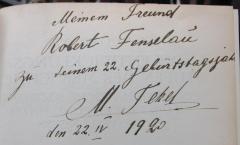 Meinem Freund
Robert Fenselau
zu seinem 22. Geburtstagsjah
M.
den 22. IV 1920